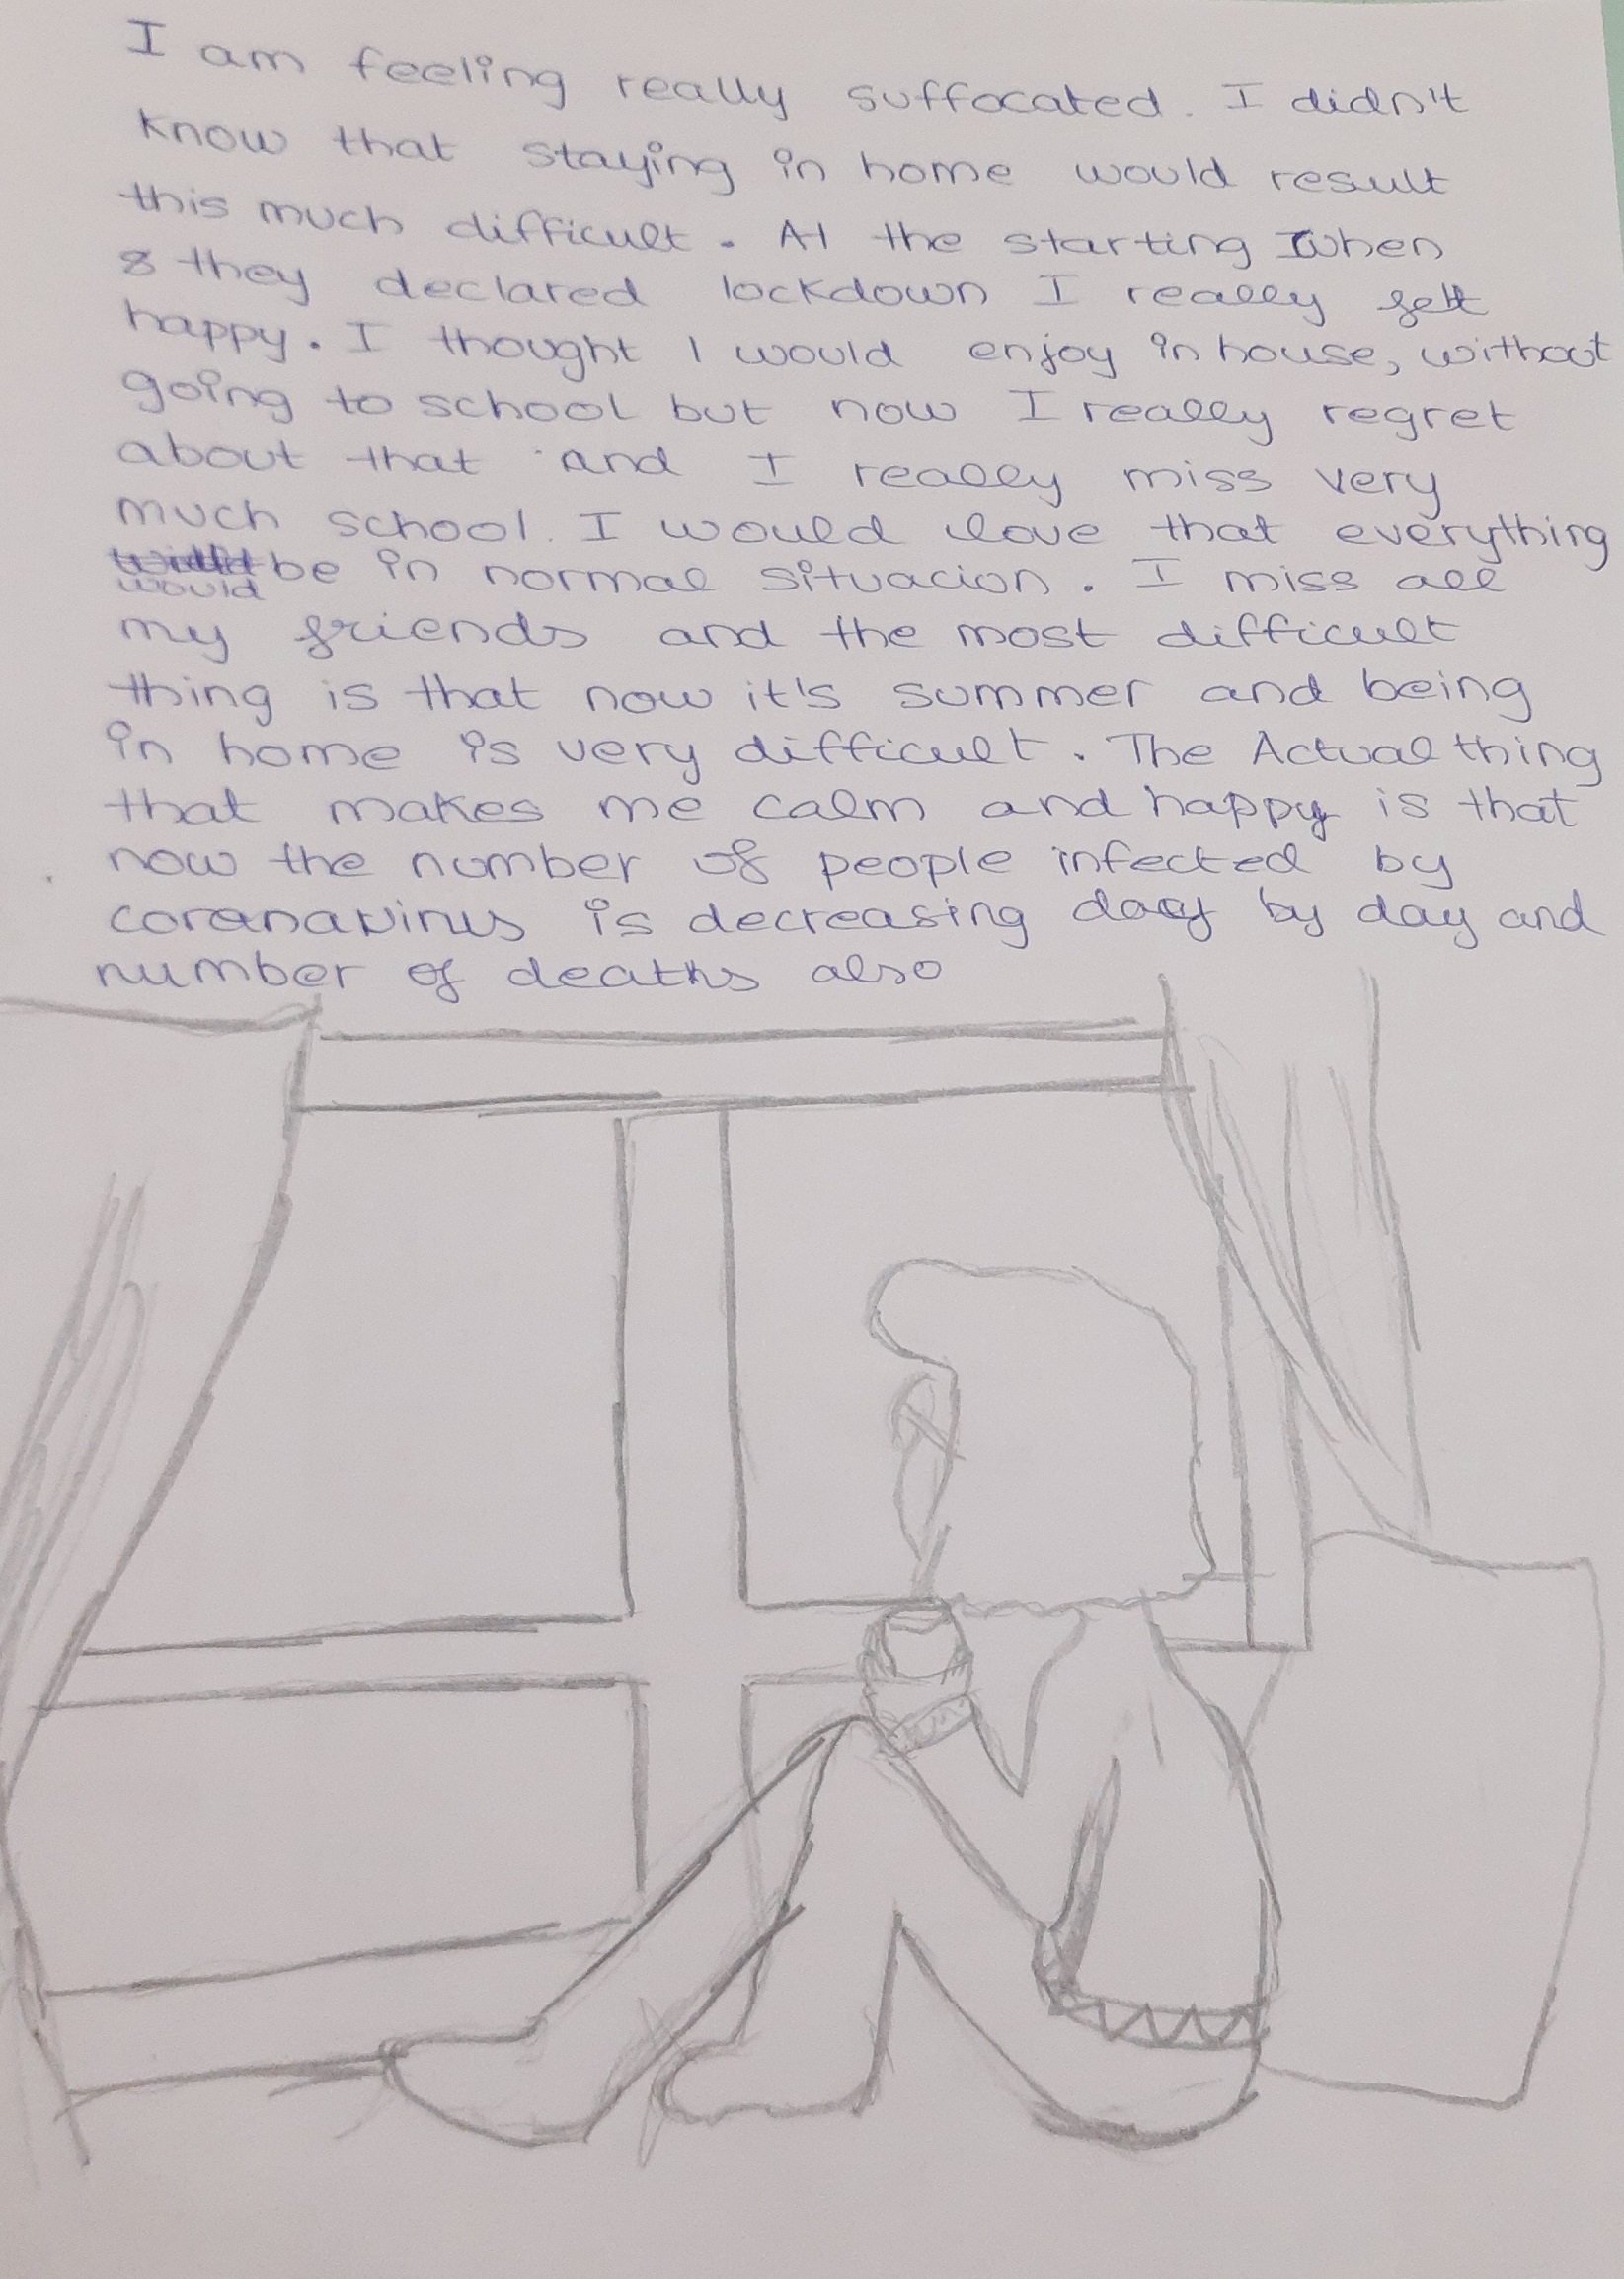 I am feeling really suffocated. I didn't
know that staying in home would result
this much difficult. At the starting when
they declared lockdown I really felt
happy. I thought I would enjoy in house, without
going to school but now I really regret
about that and I really miss very
much school. I would love that everything
would be in normal situacion. I miss all
my friends and the most difficult
thing is that now it's summer and being
in home is very difficult. The Actual thing
that makes me calm and happy is that
now the number of people infected by
coranavirus is decreasing day by day and
number of deaths also